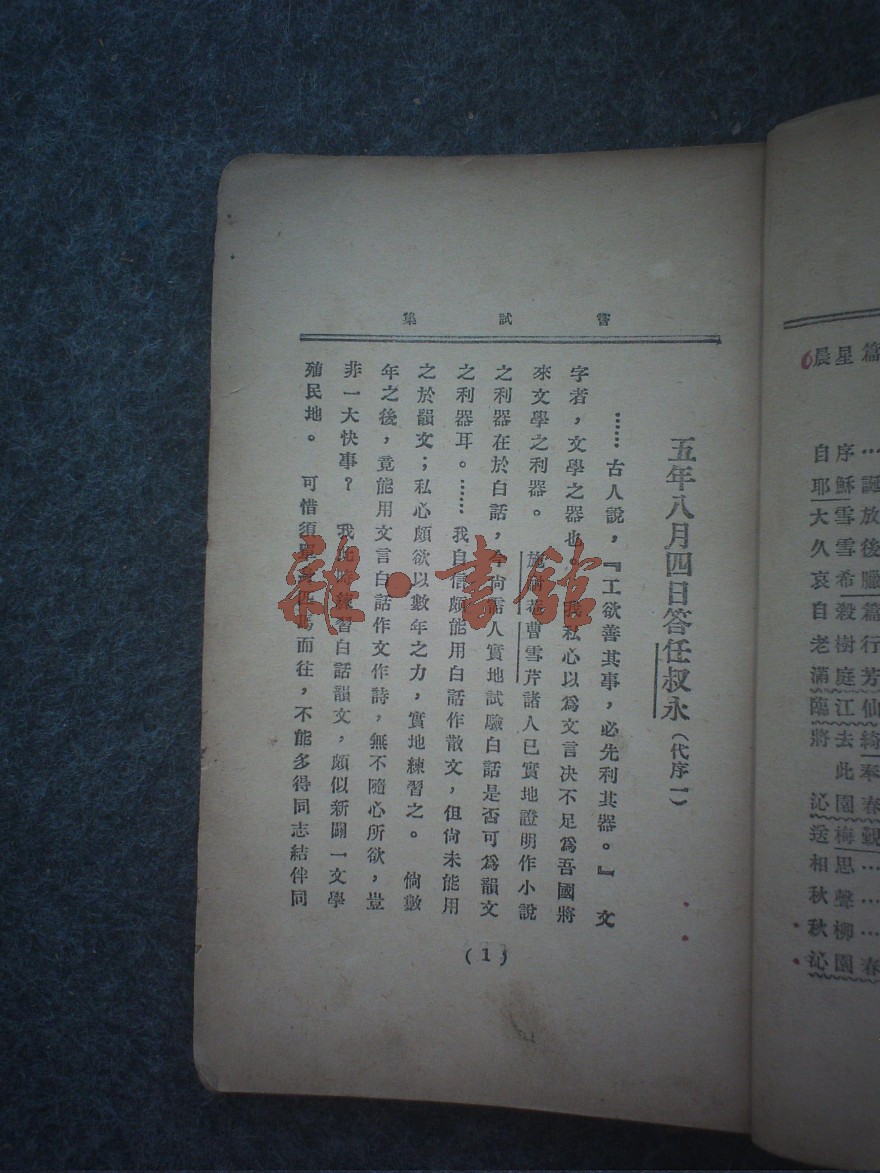 嘗試集
五年八月四日答任叔永（代序一）
……古人說，『工欲善其事，必先利其器。』　文
字者，文學之器也。　我私心以爲文言决不足爲吾國將
來文學之利器。　施耐菴曹雪芹諸人已實地證明作小說
之利器在於白話，今尙需人實地試驗白話是否可爲韻文
之利器耳。……我自信頗能用白話作散文，但尙未能用
之於韻文；私心頗欲以數年之力，實地練習之。　倘數
年之後，竟能用文言白話作文作詩，無不隨心所欲，豈
非一大快事？　我此時練習白話韻文，頗似新闢一文學
殖民地。　可惜須單身匹馬而往，不能多得同志結伴同
(1)
雜·書館
晨星篇
自序…
耶穌誕
大雪放
久雪後
哀希臘
自殺篇
老樹行
滿庭芳
臨江仙
將去綺
此奉
沁園春
送梅覲
相思…
秋聲…
秋柳…
沁園春